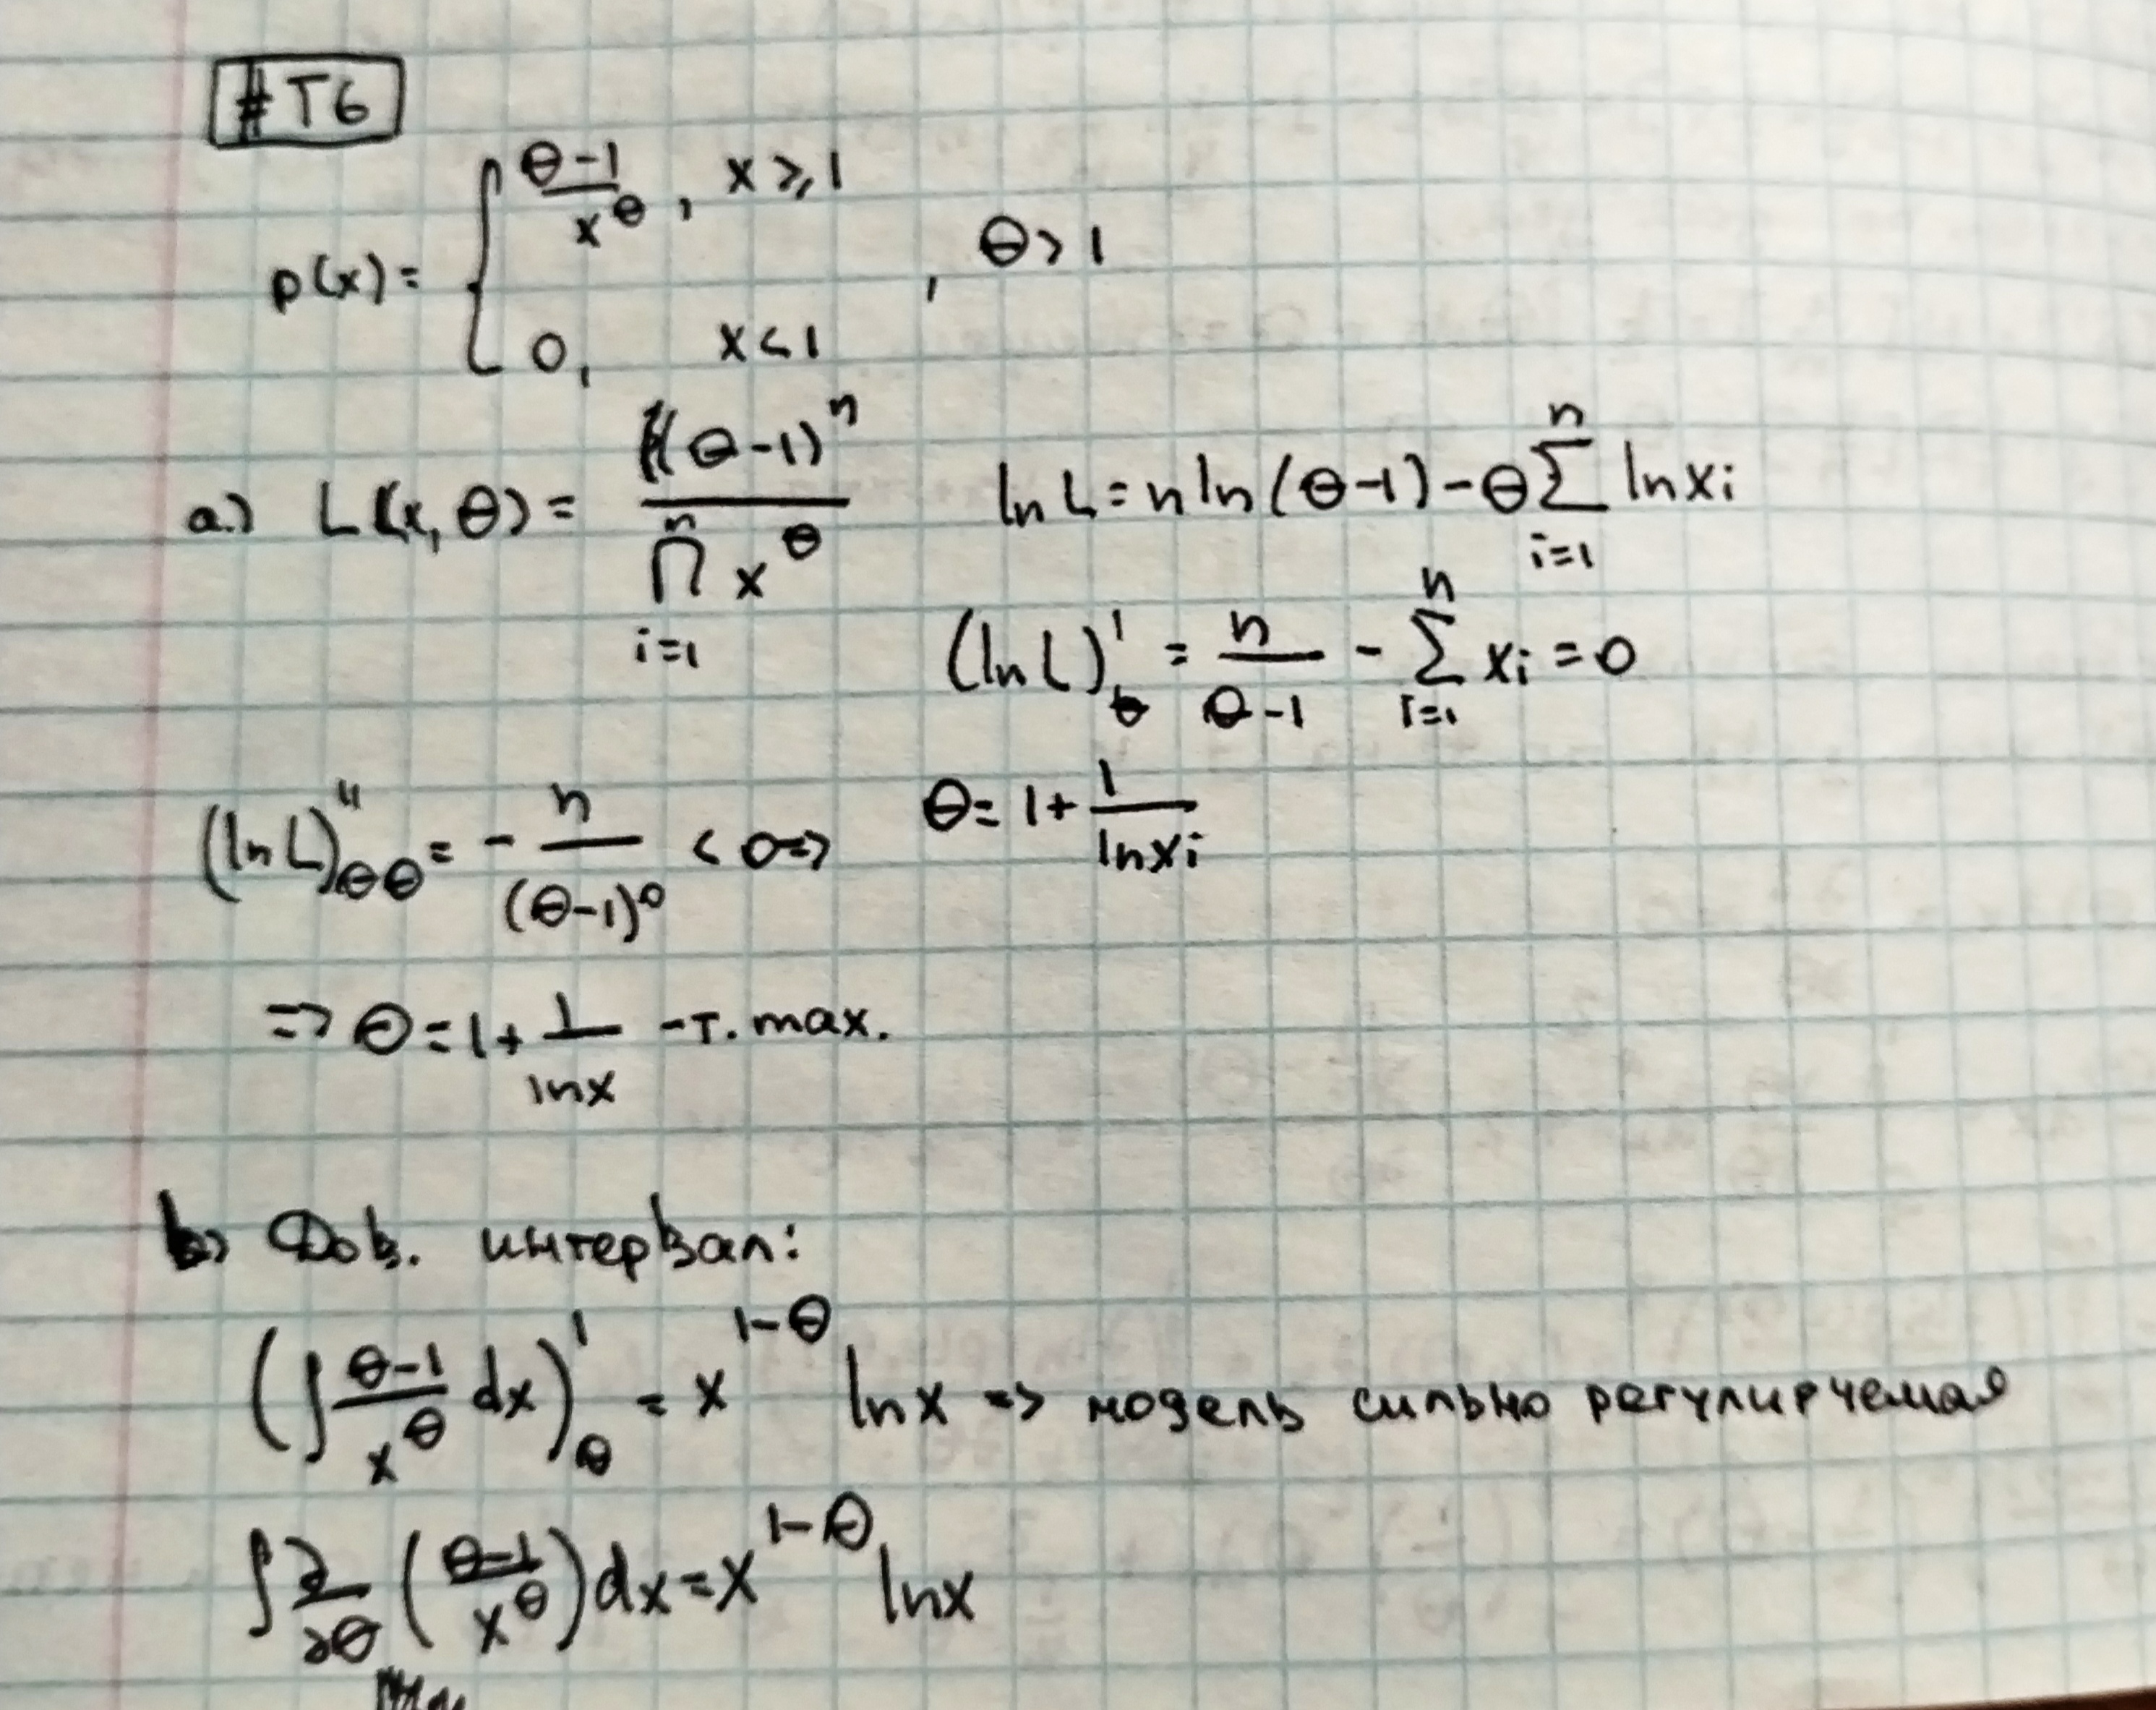 #T6
p(x) = { (θ-1)/x^θ, x ⩾ 1
0, x < 1 , θ > 1
a.) L(x, θ) = (θ-1)^n / ∏_{i=1}^{n} x^θ ln L = n ln(θ-1) - θ ∑_{i=1}^{n} ln xi
(ln L)'_θ = n/(θ-1) - ∑_{i=1}^{n} xi = 0
(ln L)''_θθ = - n/(θ-1)^0 < 0 => θ = 1 + 1/(ln xi)
=> θ = 1 + 1/(ln x) - т. max.
b) Дов. интервал:
(∫ (θ-1)/x^θ dx)'_θ = x^{1-θ} ln x => модель сильно регулируемая
∫ ∂/∂θ ((θ-1)/x^θ) dx = x^{1-θ} ln x